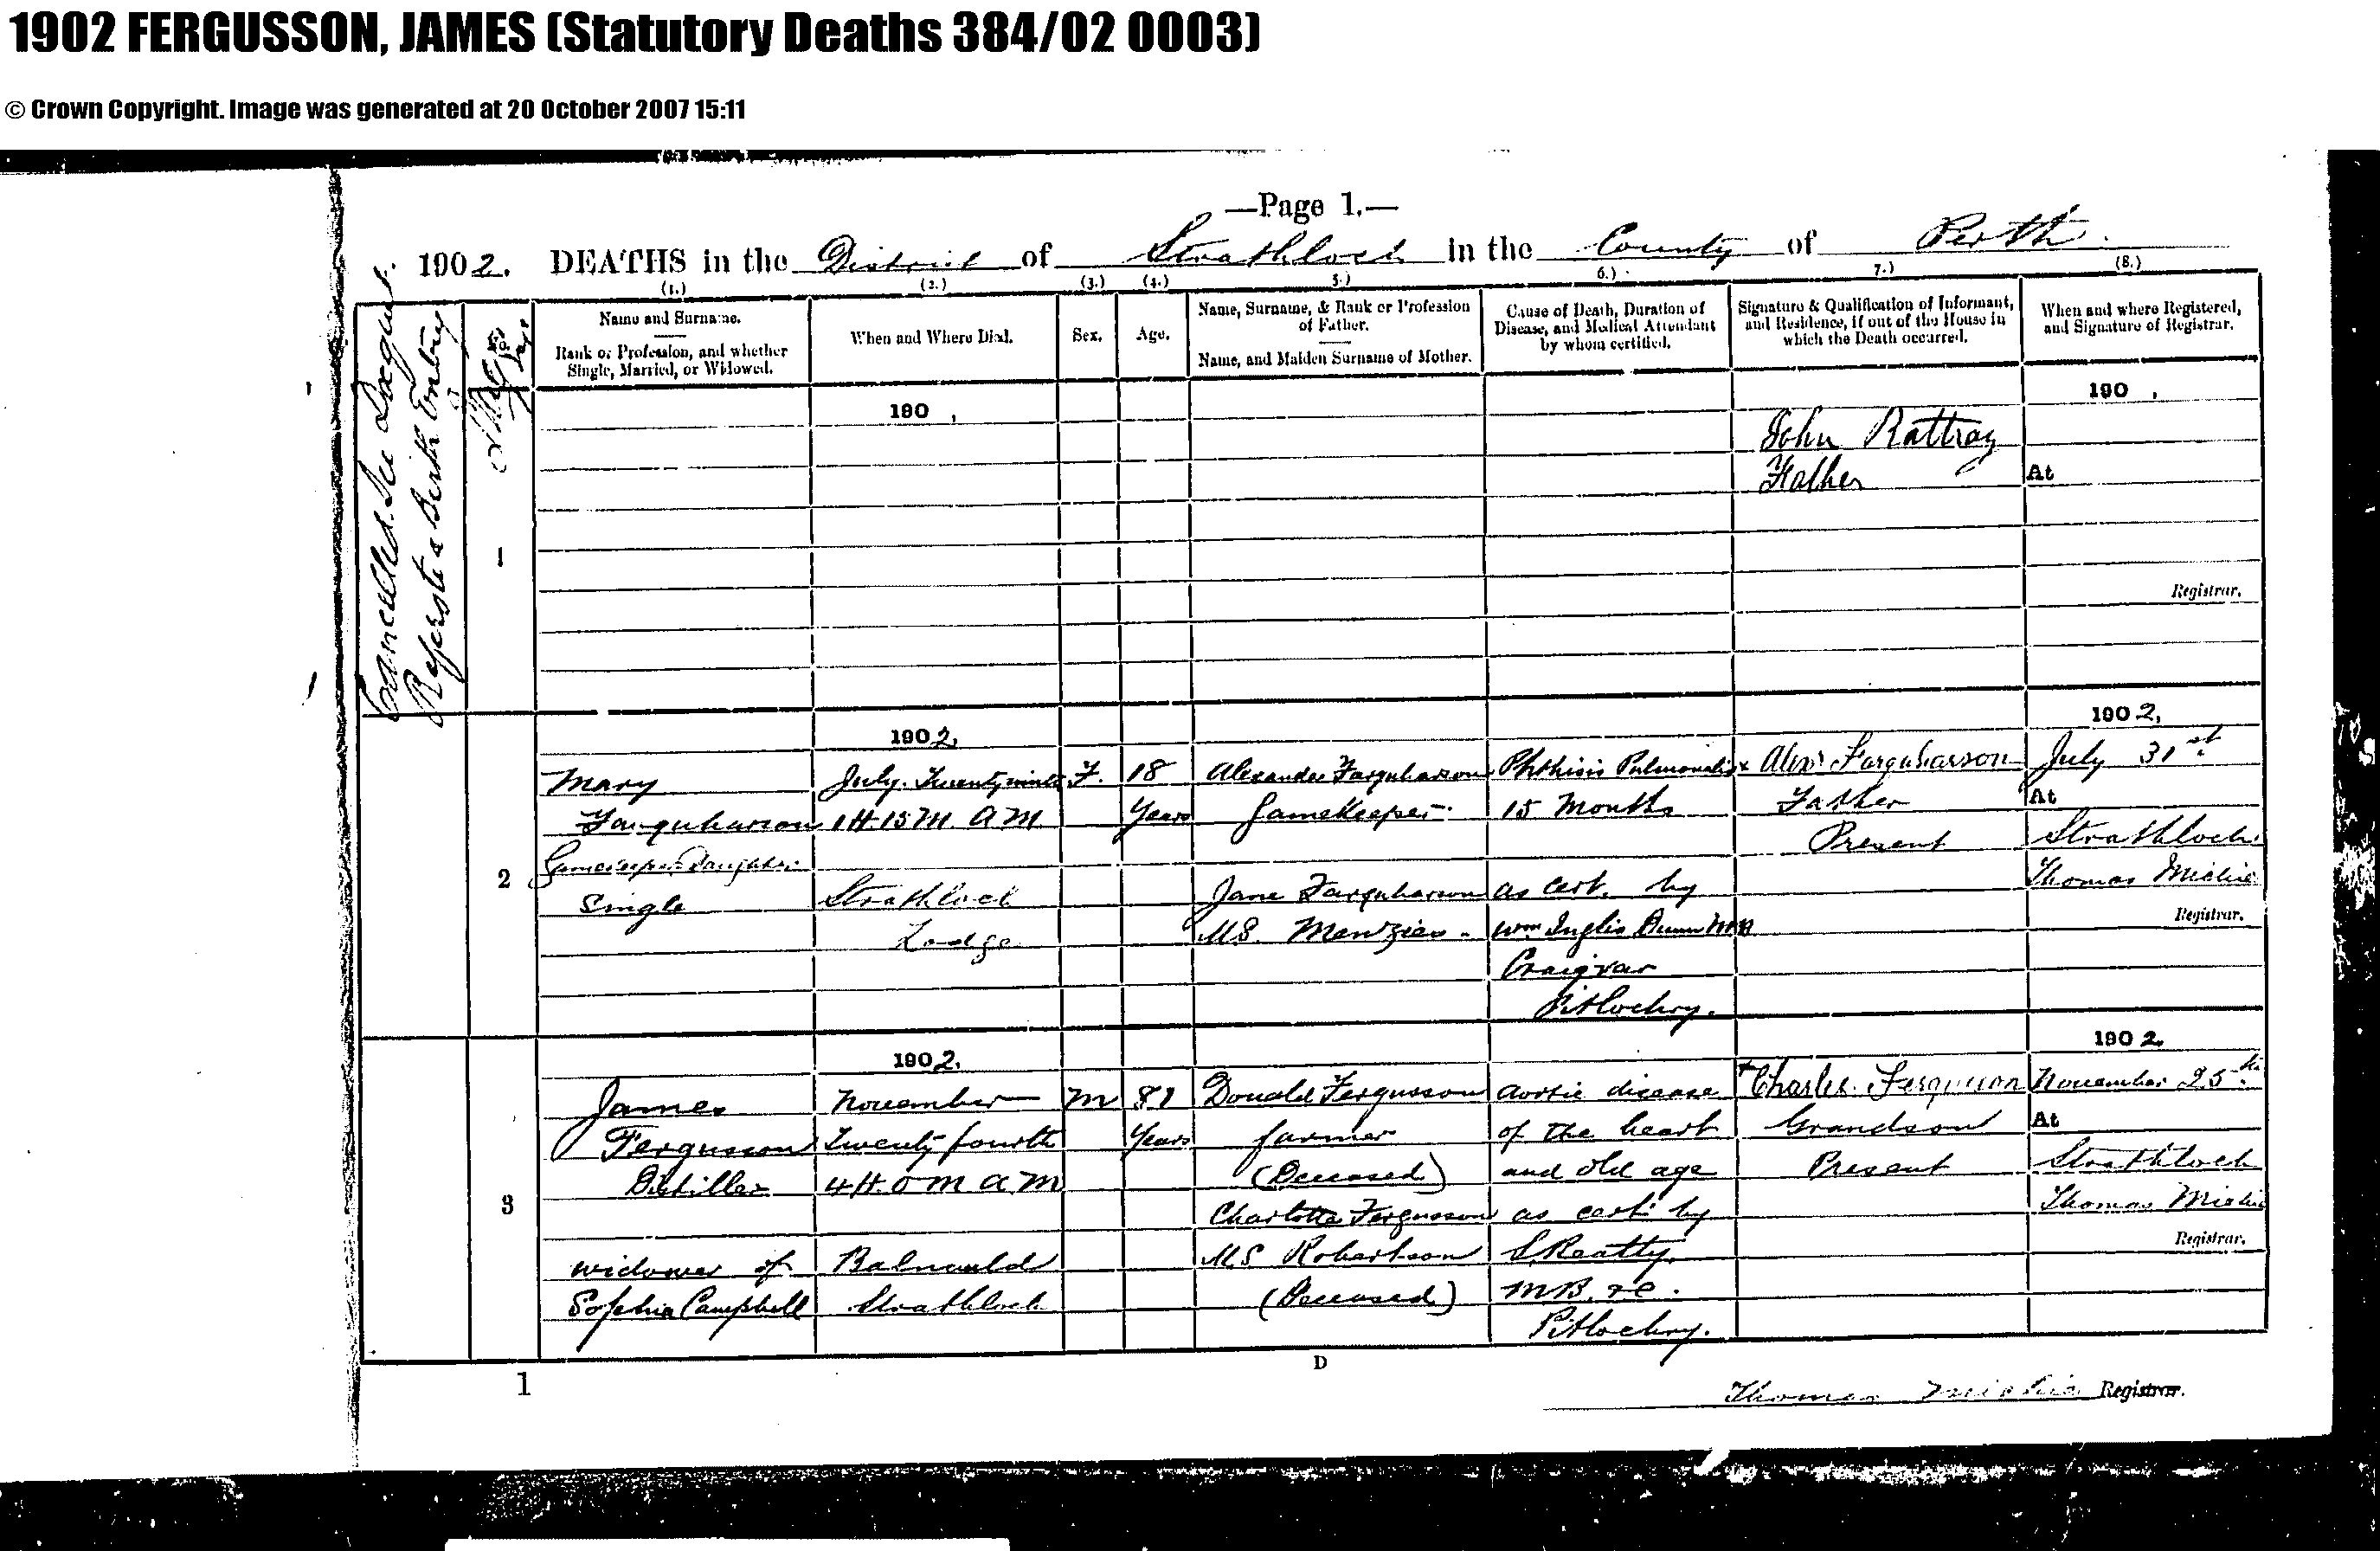 1902 FERGUSSON, JAMES (Statutory Deaths 384/02 0003)
© Crown Copyright. Image was generated at 20 October 2007 15:11
—Page 1.—
1902. DEATHS in the District of Strathloch in the County of Perth.
(1.) (2.) (3.) (4.) 5.) 6.) 7.) (8.)
Name and Surname.
Rank or Profession, and whether
Single, Married, or Widowed.
When and Where Died.
Sex.
Age.
Name, Surname, & Rank or Profession
of Father.
Name, and Maiden Surname of Mother.
Cause of Death, Duration of
Disease, and Medical Attendant
by whom certified.
Signature & Qualification of Informant,
and Residence, if out of the House in
which the Death occurred.
When and where Registered,
and Signature of Registrar.
Cancelled. See
Birth Entry
1
190 ,
John Rattray
Father
190 ,
At
Registrar.
2
Mary
Farquharson
Gamekeeper's Daughter
Single
1902.
July. Twenty ninth
1 H. 15 M. A M.
Strathloch
Lodge
F.
18
Years
Alexander Farquharson
Gamekeeper.
Jane Farquharson
M.S. Menzies.
Phthisis Pulmonalis
15 Months
as cert. by
Wm Inglis
Pitlochry.
x Alexr Farquharson
Father
Present
1902,
July 31st
At
Strathloch
Thomas Michie
Registrar.
3
James
Fergusson
Distiller
widower of
Sophia Campbell
1902.
November
Twenty fourth
4 H. 0 m a m
Balnauld
Strathloch
M
81
Years
Donald Fergusson
farmer
(Deceased)
Charlotte Fergusson
M.S. Robertson
(Deceased)
aortic disease
of the heart
and old age
as cert. by
S. Beatty.
M.B. &c.
Pitlochry.
+ Charles Fergusson
Grandson
Present
1902.
November 25th
At
Strathloch
Thomas Michie
Registrar.
1
D
Thomas Michie Registrar.